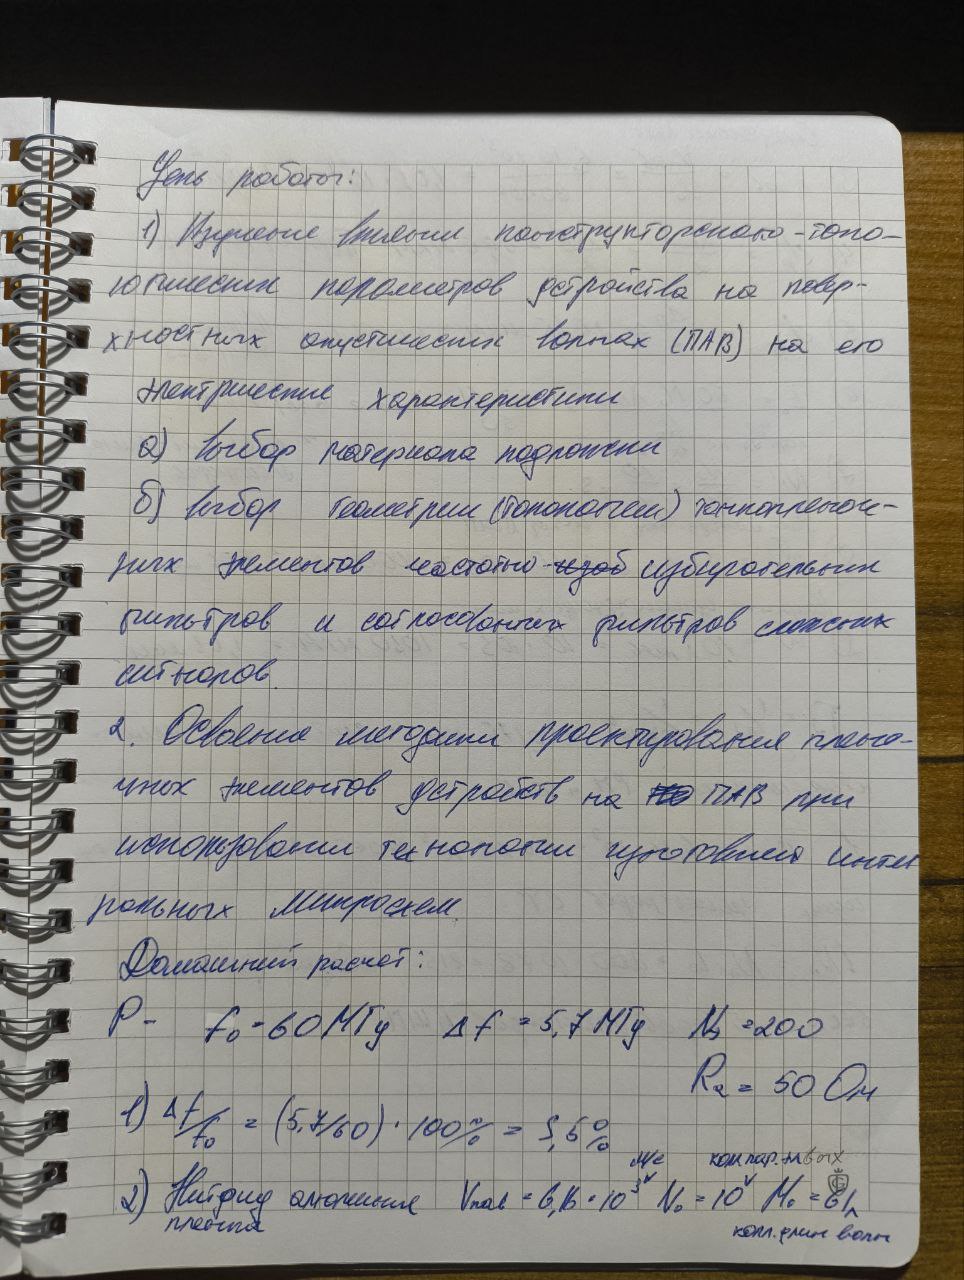 Цель работы:
1) Изучение влияния конструкторского-топо-
логических параметров устройства на повер-
хностных акустических волнах (ПАВ) на его
электрические характеристики
а) Выбор материала подложки
б) Выбор геометрии (топологии) тонкопленоч-
ных элементов частотно- избирательных
фильтров и согласованных фильтров сложных
сигналов.
2. Освоение методики проектирования плено-
чных элементов устройств на ПАВ при
использовании технологии изготовления интег
ральных микросхем.
Домашний расчет:
Р- f₀ = 60 МГц Δf = 5,7 МГц = 200
= 50 Ом
1) Δf/f₀ = (5,7/60) · 100% =
2) Нитрид алюминия Vпав = · 10³ м/с N₀ = 10 M₀ =
пленка
колл. длин волн